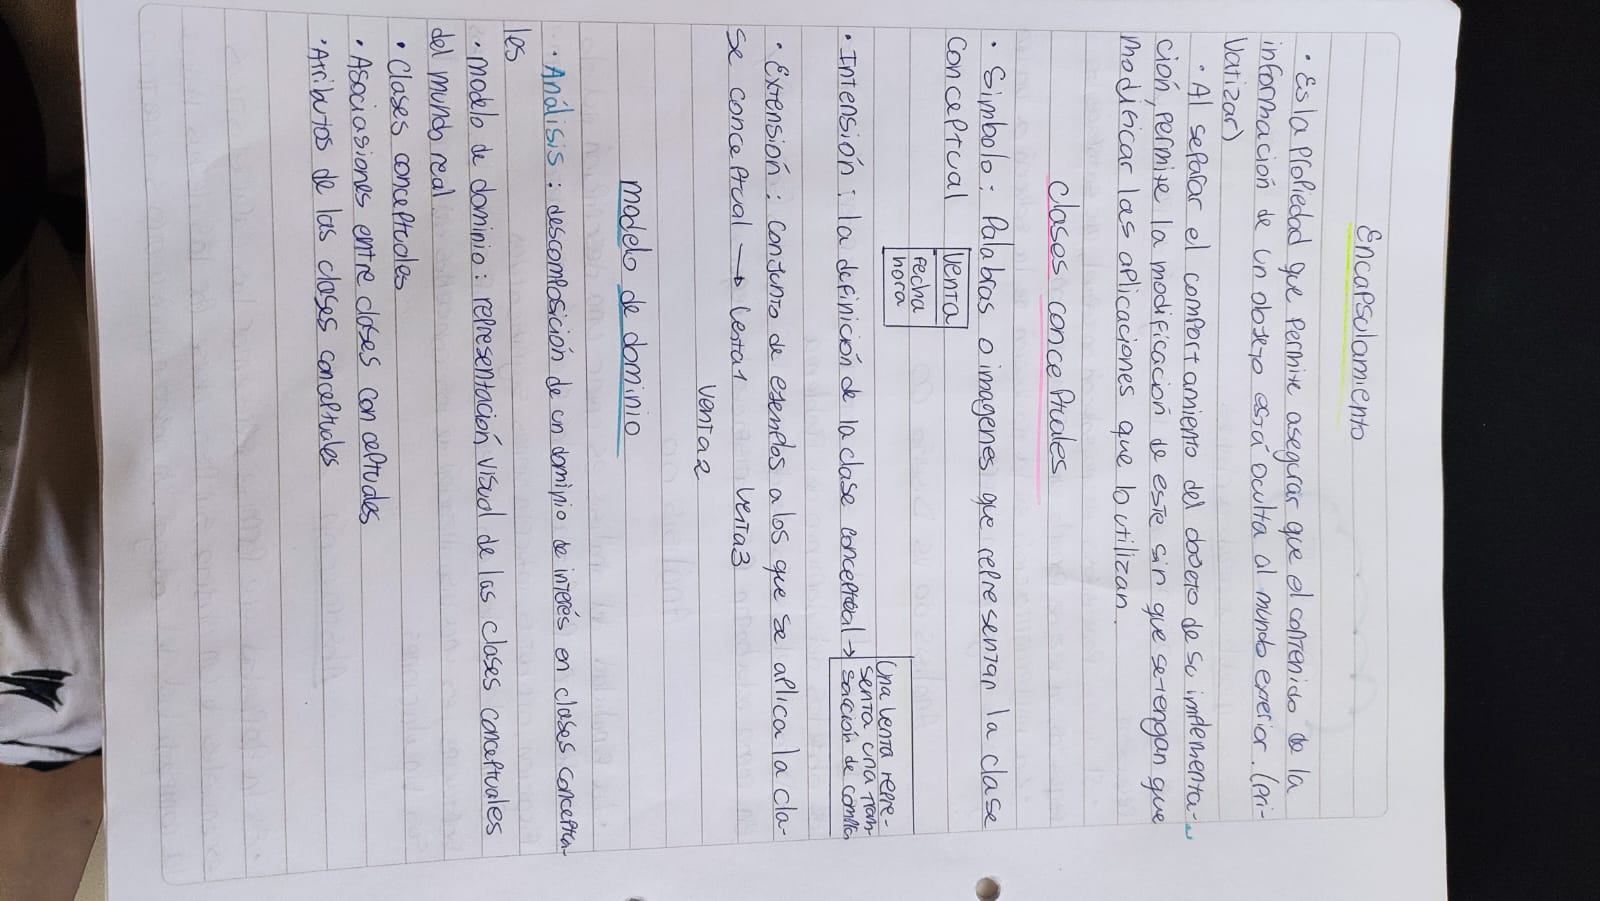 Encapsulamiento
· Es la propiedad que permite asegurar que el contenido de la
información de un objeto está oculta al mundo exterior. (pri-
vatizar)
· Al separar el comportamiento del objeto de su implementa-
ción, permite la modificación de este sin que se tengan que
modificar las aplicaciones que lo utilizan.
Clases conceptuales
· Simbolo: Palabras o imagenes que representan la clase
conceptual
Venta
fecha
hora
· Intensión: la definición de la clase conceptual →
Una venta repre-
senta una tran-
sacción de compra
· Extensión: conjunto de ejemplos a los que se aplica la cla-
se conceptual → Venta1 Venta3
Venta2
modelo de dominio
· Análisis: descomposición de un dominio de interés en clases conceptua-
les
· modelo de dominio: representación visual de las clases conceptuales
del mundo real.
· Clases conceptuales
· Asociasiones entre clases conceptuales
· Atributos de las clases conceptuales